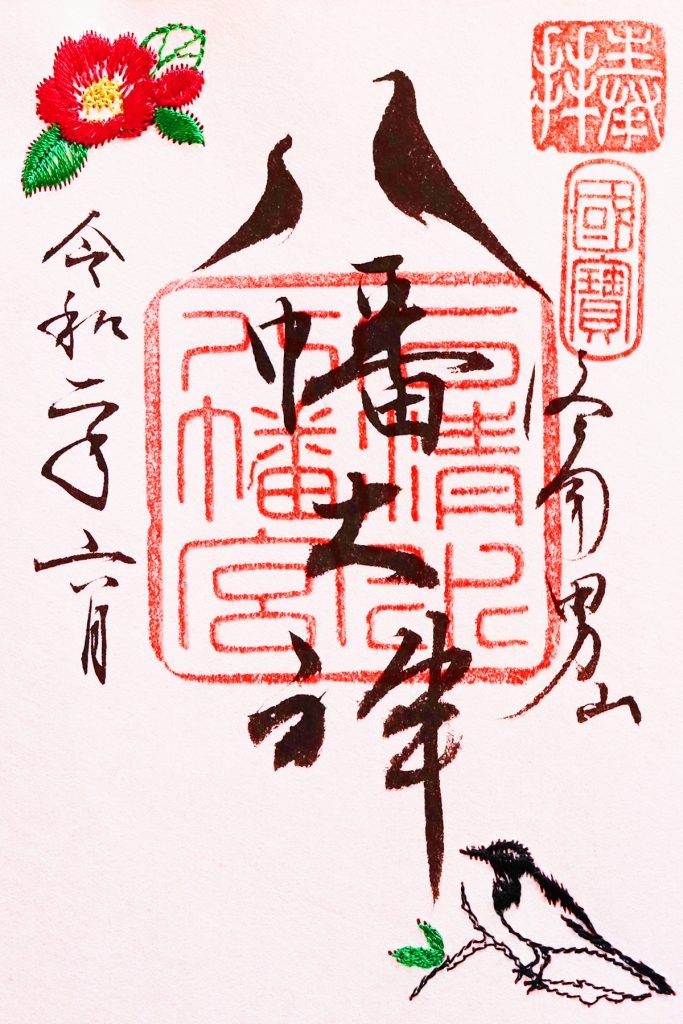 奉拝
國寶
洛南男山
八幡大神
石清水
八幡宮
令和二年六月